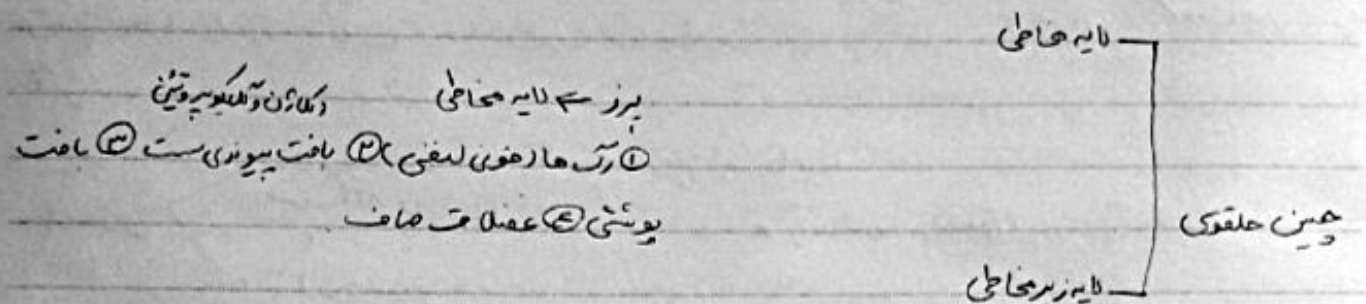 لایه مخاطی
پرز ← لایه مخاطی
(کلاژن و گلیکوپروتئین
① رگ ها (خونی لنفی) ② بافت پیوندی سست ③ بافت
پوششی ④ عضلات صاف
چین حلقوی
لایه زیر مخاطی